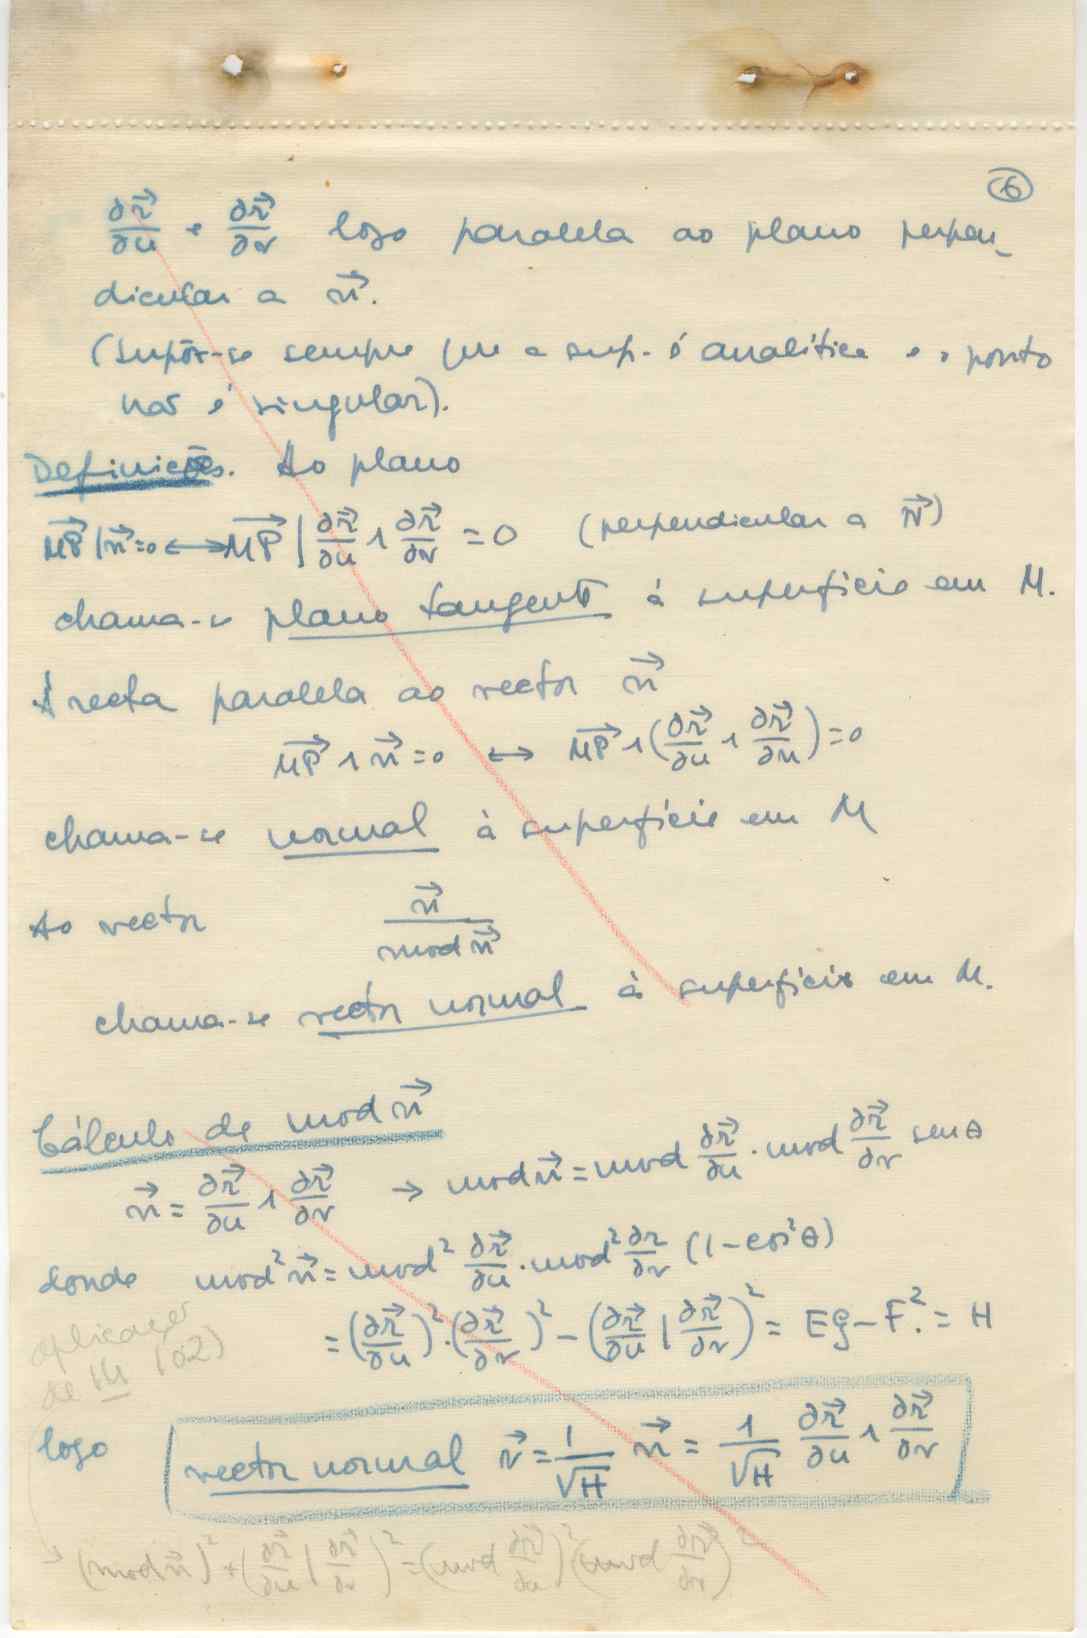 6
∂r⃗/∂u e ∂r⃗/∂v logo paralela ao plano perpen-
dicular a n⃗.
(Supõe-se sempre que a sup. é analítica e o ponto
não é singular).
Definições. Ao plano
MP⃗|n⃗=0 ⟷ MP⃗ | ∂r⃗/∂u ∧ ∂r⃗/∂v = 0 (perpendicular a n⃗)
chama-se plano tangente à superfície em M.
À recta paralela ao vector n⃗
MP⃗ ∧ n⃗ = 0 ⟷ MP⃗ ∧ (∂r⃗/∂u ∧ ∂r⃗/∂u) = 0
chama-se normal à superfície em M
Ao vector n⃗/mod n⃗
chama-se vector normal à superfície em M.
Cálculo de mod n⃗
n⃗ = ∂r⃗/∂u ∧ ∂r⃗/∂v → mod n⃗ = mod ∂r⃗/∂u . mod ∂r⃗/∂v sen θ
donde mod² n⃗ = mod² ∂r⃗/∂u . mod² ∂r/∂v (1 - cos² θ)
= (∂r⃗/∂u)² . (∂r⃗/∂v)² - (∂r⃗/∂u | ∂r⃗/∂v)² = EG - F². = H
aplicação
de 14 (02)
logo vector normal v⃗ = 1/√H n⃗ = 1/√H ∂r⃗/∂u ∧ ∂r⃗/∂v
→ (mod n⃗)² + (∂r⃗/∂u | ∂r⃗/∂v)² = (mod ∂r⃗/∂u)² (mod ∂r⃗/∂v)²